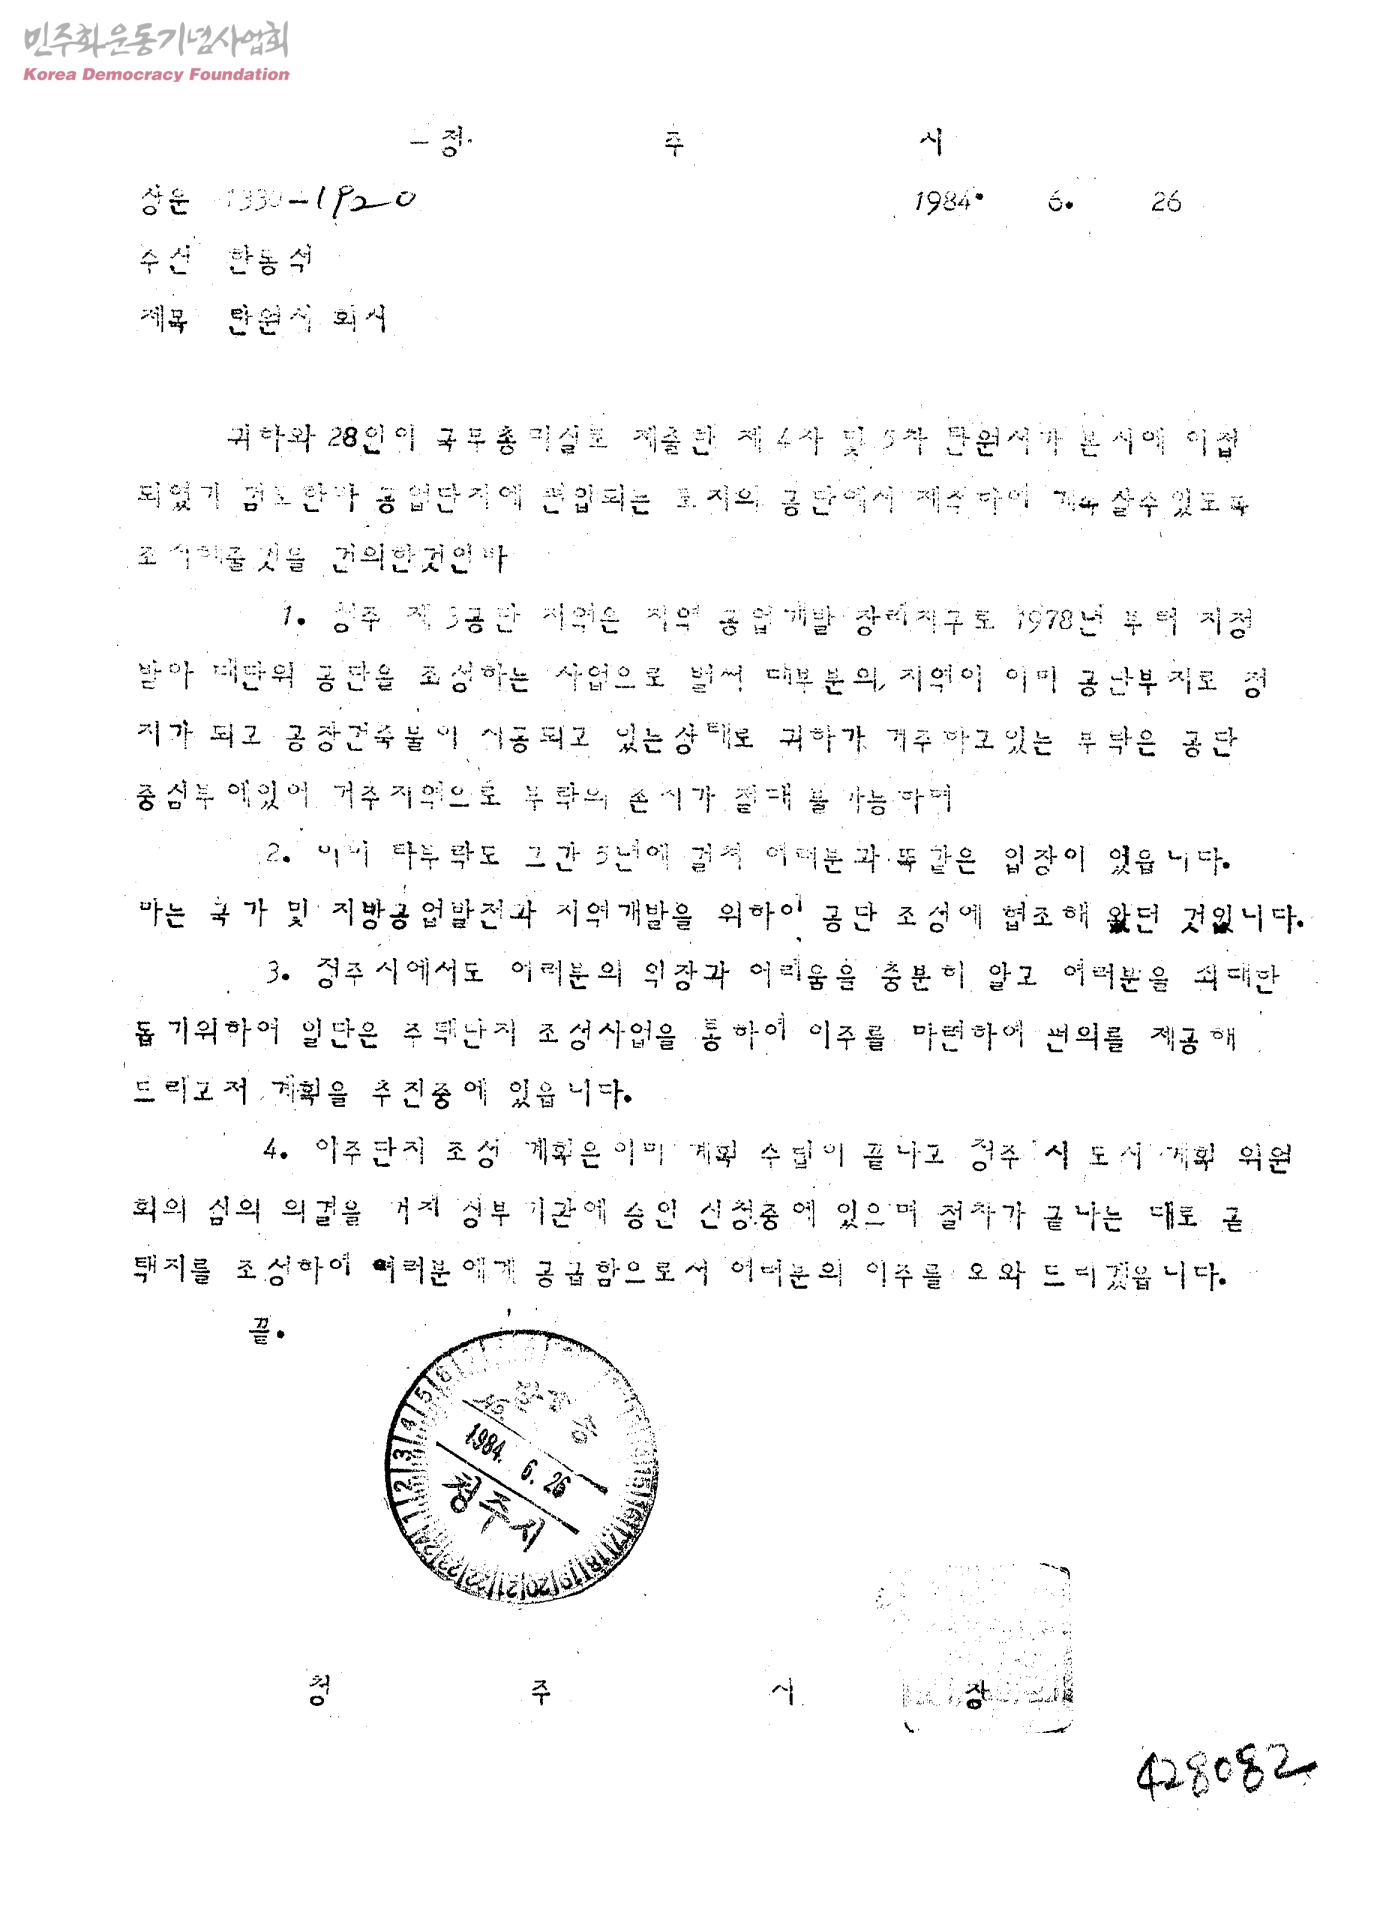 민주화운동기념사업회
Korea Democracy Foundation
청 주 시
상운 1330-1920 1984. 6. 26
수신 한동석
제목 탄원서 회시
귀하와 28인이 국무총리실로 제출한 제 4차 및 5차 탄원서가 본시에 이첩
되었기 검토한바 공업단지에 편입되는 토지의 공단에서 제척하여 계속 살수있도록
조치해줄것을 건의한것인바
1. 청주 제 3공단 지역은 지역 공업개발 장려지구로 1978년 부터 지정
받아 대단위 공단을 조성하는 사업으로 벌써 대부분의 지역이 이미 공단부지로 정
지가 되고 공장건축물이 시공되고 있는상태로 귀하가 거주하고있는 부락은 공단
중심부에있어 거주지역으로 부락의 존치가 절대 불가능하며
2. 이미 타부락도 그간 5년에 걸쳐 여러분과 똑같은 입장이 었읍니다.
마는 국가 및 지방공업발전과 지역개발을 위하여 공단 조성에 협조해 왔던 것입니다.
3. 청주시에서도 여러분의 입장과 어려움을 충분히 알고 여러분을 최대한
돕기위하여 일단은 주택단지 조성사업을 통하여 이주를 마련하여 편의를 제공해
드리고저 계획을 추진중에 있읍니다.
4. 이주단지 조성 계획은이미 계획 수립이 끝나고 청주 시 도시 계획 위원
회의 심의 의결을 거쳐 상부기관에 승인 신청중에 있으며 절차가 끝나는 대로 곧
택지를 조성하여 여러분에게 공급함으로서 여러분의 이주를 도와 드리겠읍니다.
끝.
1984. 6. 26
청주시
청 주 시 장
428082